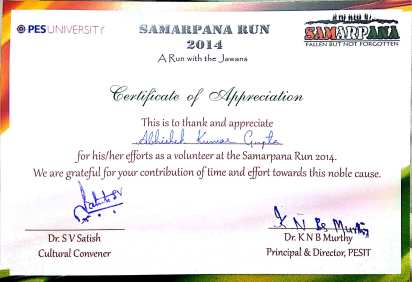 PES UNIVERSITY
SAMARPANA RUN
2014
A Run with the Jawans
SAMARPANA
FALLEN BUT NOT FORGOTTEN
Certificate of Appreciation
This is to thank and appreciate
Abhishek Kumar Gupta
for his/her efforts as a volunteer at the Samarpana Run 2014.
We are grateful for your contribution of time and effort towards this noble cause.
K N B Murthy
Dr. S V Satish
Cultural Convener
Dr. K N B Murthy
Principal & Director, PESIT